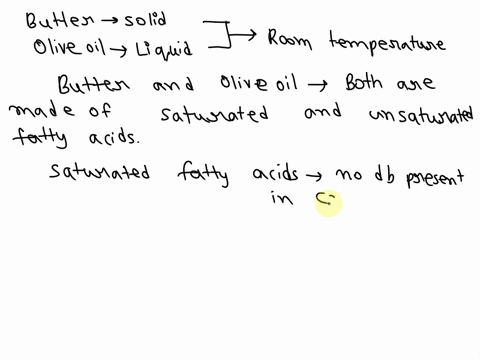 Butter → solid
Olive oil → Liquid → Room temperature
Butter and Olive oil → Both are
made of saturated and unsaturated
fatty acids.
Saturated fatty acids → no db present
in C